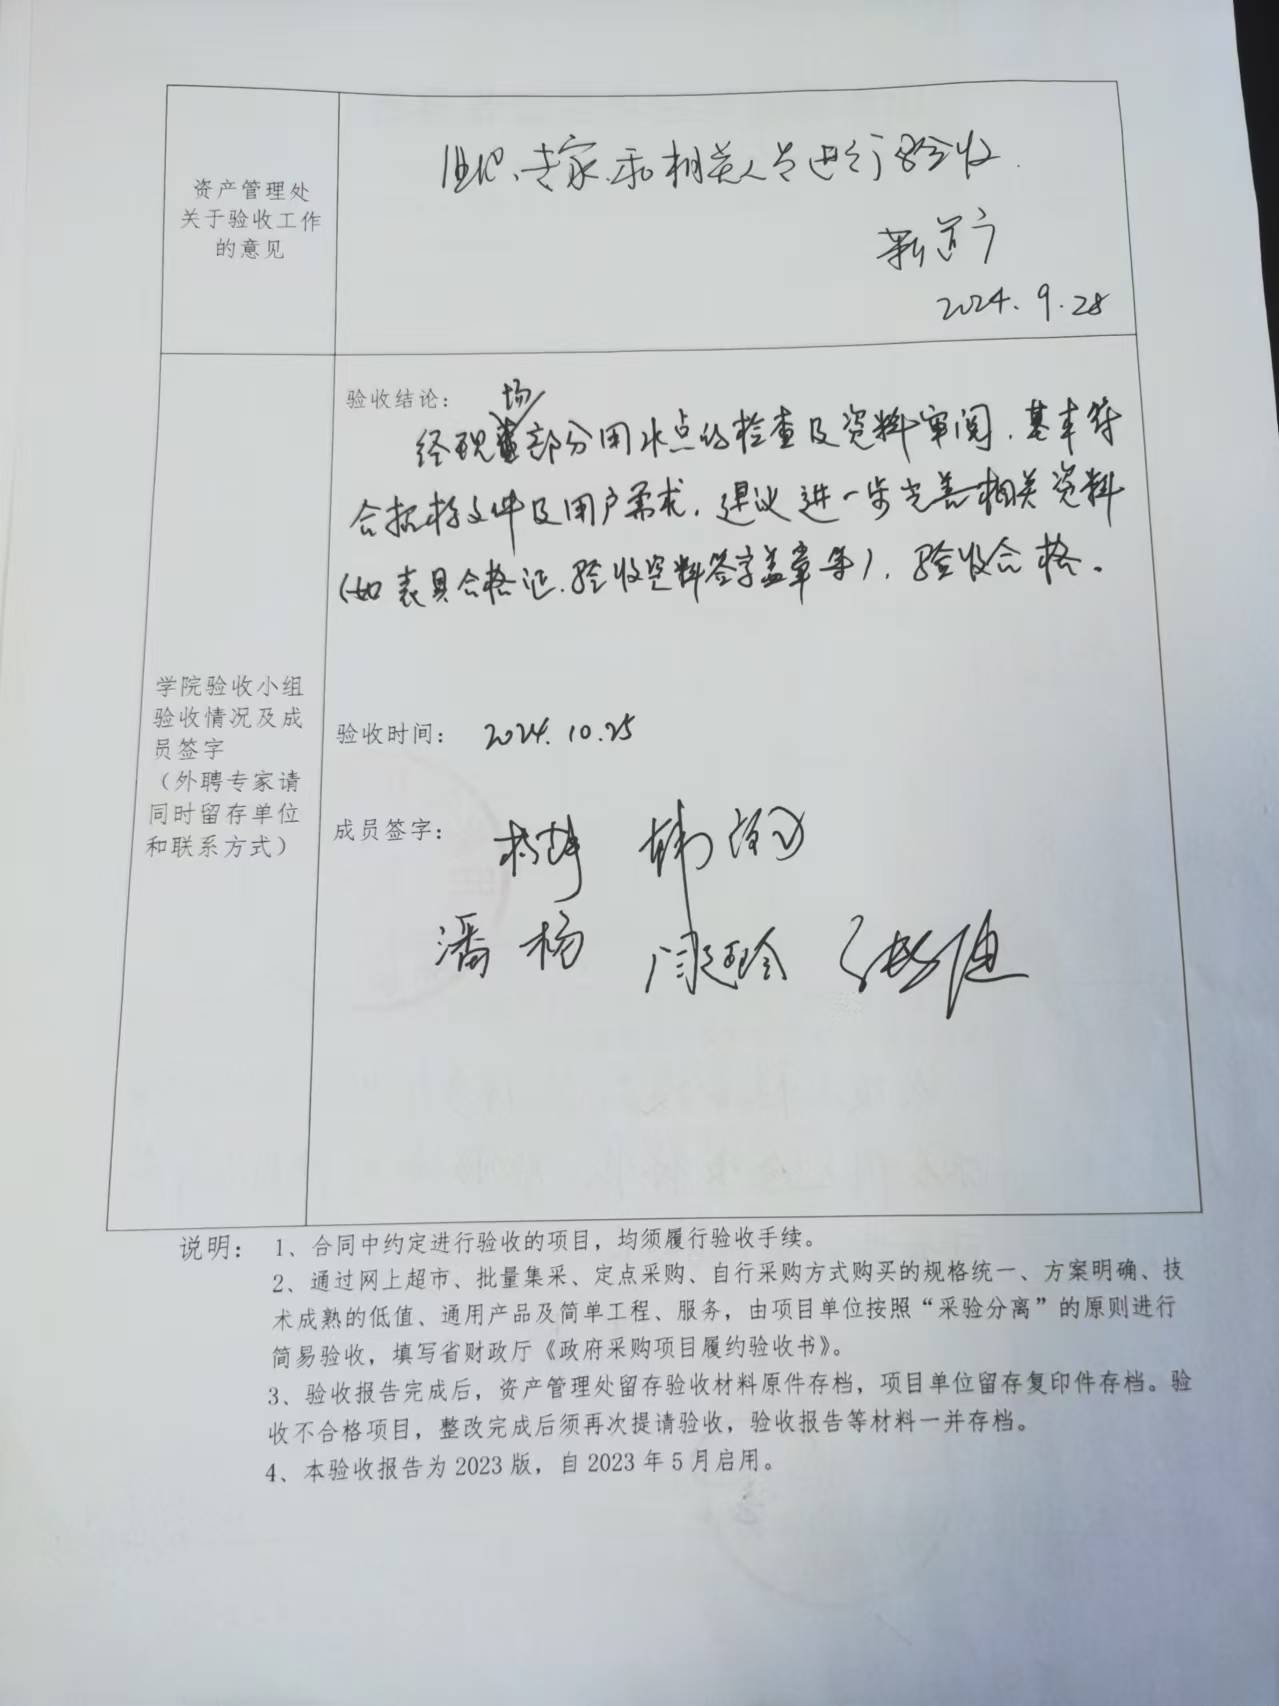 资产管理处
关于验收工作
的意见
专家、和相关人员进行验收.
2024.9.28
验收结论：
场
经现部分用水点的检查及资料审阅，基本符
合招标文件及用户需求，建议进一步完善相关资料
（如表具合格证、验收资料签字盖章等），验收合格。
学院验收小组
验收情况及成
员签字
（外聘专家请
同时留存单位
和联系方式）
验收时间： 2024.10.25
成员签字：
潘杨
说明： 1、合同中约定进行验收的项目，均须履行验收手续。
2、通过网上超市、批量集采、定点采购、自行采购方式购买的规格统一、方案明确、技
术成熟的低值、通用产品及简单工程、服务，由项目单位按照“采验分离”的原则进行
简易验收，填写省财政厅《政府采购项目履约验收书》。
3、验收报告完成后，资产管理处留存验收材料原件存档，项目单位留存复印件存档。验
收不合格项目，整改完成后须再次提请验收，验收报告等材料一并存档。
4、本验收报告为 2023 版，自 2023 年 5 月启用。